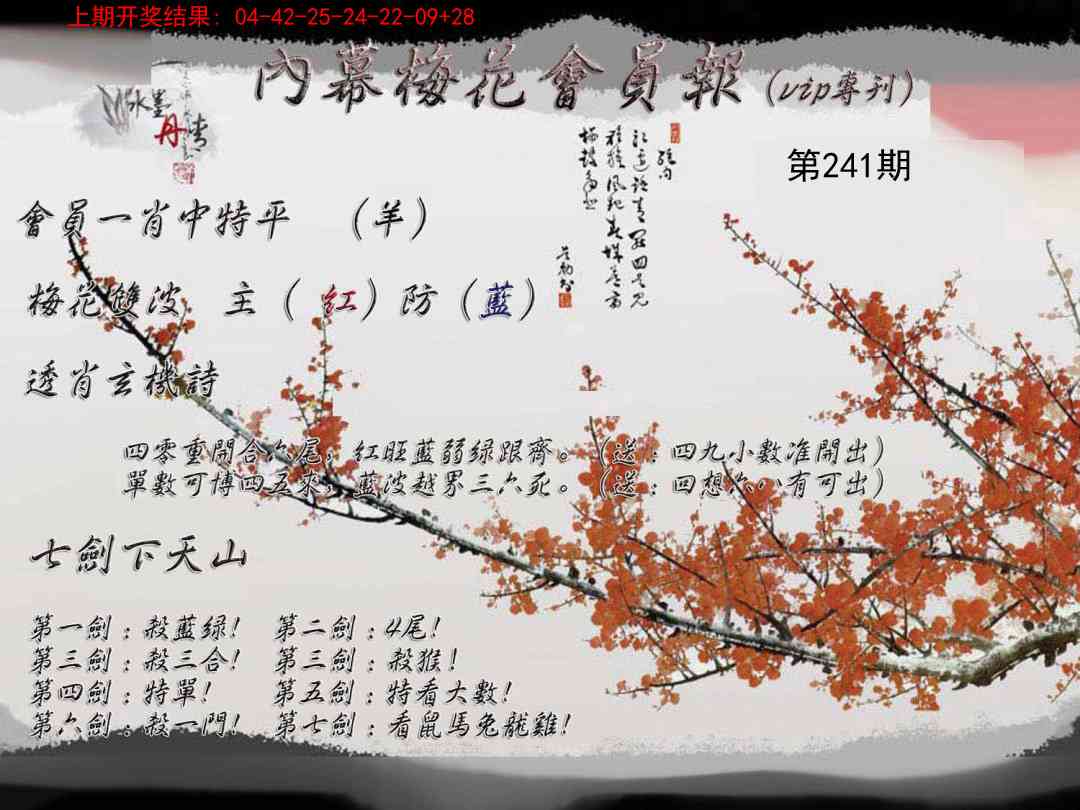 上期开奖结果: 04-42-25-24-22-09+28
內幕梅花會員報(vip專刊)
水墨
丹情
第241期
會員一肖中特平 (羊)
梅花雙波 主(紅)防(藍)
透肖玄機詩
四零重開合六尾,紅旺藍弱绿跟齊。(送:四九小數准開出)
單數可博四五來,藍波越界三六死。(送:回想六八有可出)
七劍下天山
第一劍:殺藍绿! 第二劍:4尾!
第三劍:殺三合! 第三劍:殺猴!
第四劍:特單! 第五劍:特看大數!
第六劍:殺一門! 第七劍:看鼠馬兔龍雞!